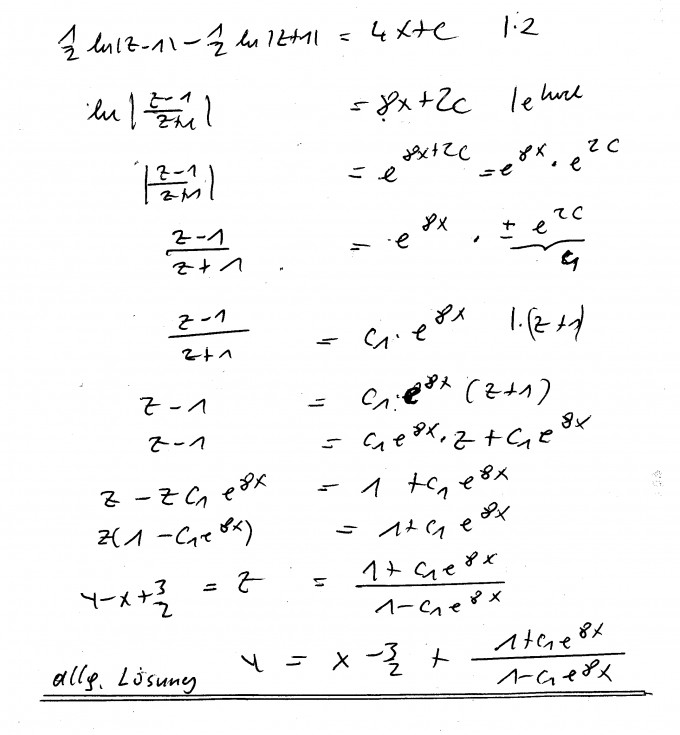 1/2 ln|z-1| - 1/2 ln|z+1| = 4x+c |·2
ln|(z-1)/(z+1)| = 8x+2c |e hoch
|(z-1)/(z+1)| = e^(8x+2c) = e^(8x) · e^(2c)
(z-1)/(z+1) = e^(8x) · ± e^(2c)
c₁
(z-1)/(z+1) = c₁ · e^(8x) |·(z+1)
z-1 = c₁·e^(8x) (z+1)
z-1 = c₁e^(8x)·z + c₁e^(8x)
z - z c₁ e^(8x) = 1 + c₁ e^(8x)
z(1 - c₁e^(8x)) = 1 + c₁ e^(8x)
y-x+3/2 = z = (1+c₁e^(8x))/(1-c₁e^(8x))
allg. Lösung y = x - 3/2 + (1+c₁e^(8x))/(1-c₁e^(8x))